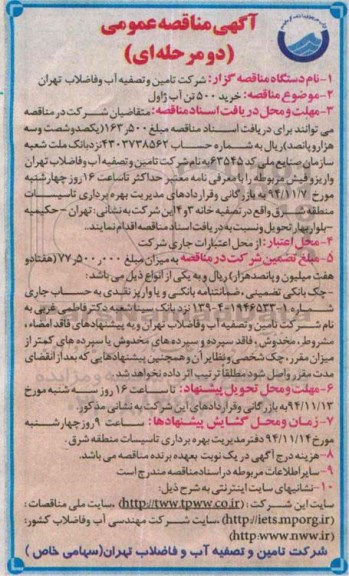 آگهی مناقصه عمومی
(دو مرحله ای)
۱-نام دستگاه مناقصه گزار: شرکت تامین و تصفیه آب و فاضلاب تهران
۲-موضوع مناقصه: خرید ۵۰۰ تن آب ژاول
۳-مهلت و محل دریافت اسناد مناقصه: متقاضیان شرکت در مناقصه
می توانند برای دریافت اسناد مناقصه مبلغ ۱۶۳٫۵۰۰ (یکصد و شصت و سه
هزار و پانصد) ریال به شماره حساب ۴۳۰۳۷۳۸۵۶۲ نزد بانک ملت شعبه
سازمان منابع ملی کد ۶۳۵۴۵ به نام شرکت تامین و تصفیه آب و فاضلاب تهران
واریز و فیش مربوطه را با معرفی نامه معتبر حداکثر تا ساعت ۱۶ روز چهارشنبه
مورخ ۹۴/۱۱/۷ به بازرگانی و قراردادهای مدیریت بهره برداری تاسیسات
منطقه شرق واقع در تصفیه خانه ۳ و ۴ این شرکت به نشانی: تهران - حکیمیه
-بلوار بهار تحویل و نسبت به دریافت اسناد مناقصه اقدام نمایند.
۴-محل اعتبار: از محل اعتبارات جاری شرکت
۵-مبلغ تضمین شرکت در مناقصه به میزان مبلغ ۷۷٫۵۰۰٫۰۰۰ (هفتاد و
هفت میلیون و پانصد هزار) ریال و به یکی از انواع ذیل می باشد:
-چک بانکی تضمینی، ضمانتنامه بانکی و یا واریز نقدی به حساب جاری
شماره نزد بانک سینا شعبه دکتر فاطمی غربی به
نام شرکت تامین و تصفیه آب و فاضلاب تهران و به پیشنهادهای فاقد امضاء،
مشروط، مخدوش، فاقد سپرده و سپرده های مخدوش یا سپرده های کمتر از
میزان مقرر، چک شخصی و نظایر آن و همچنین پیشنهادهایی که بعد از انقضای
مدت مقرر واصل شود مطلقا ترتیب اثر داده نخواهد شد.
۶-مهلت و محل تحویل پیشنهاد: تا ساعت ۱۶ روز سه شنبه مورخ
۹۴/۱۱/۱۳ به بازرگانی و قراردادهای این شرکت به نشانی مذکور.
۷-زمان و محل گشایش پیشنهادها: ساعت ۹ روز چهارشنبه
مورخ ۹۴/۱۱/۱۴ دفتر مدیریت بهره برداری تاسیسات منطقه شرق.
۸-هزینه درج آگهی در یک نوبت بعهده برنده مناقصه می باشد.
۹-سایر اطلاعات مربوطه در اسناد مناقصه مندرج است
۱۰-نشانیهای سایت اینترنتی به شرح ذیل:
سایت این شرکت: (http://tww.tpww.co.ir)، سایت ملی مناقصات:
(http://iets.mporg.ir)، سایت شرکت مهندسی آب و فاضلاب کشور:
(http:www.nww.ir)
شرکت تامین و تصفیه آب و فاضلاب تهران (سهامی خاص)